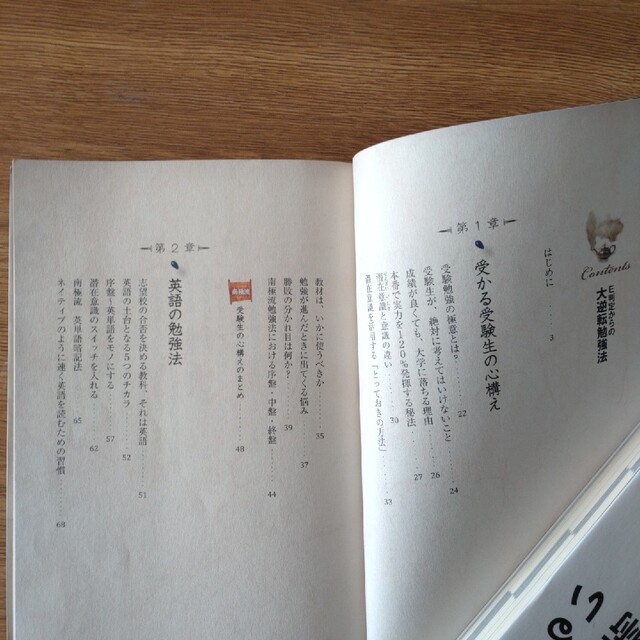 Contents
E判定からの
大逆転勉強法
はじめに……3
第1章
受かる受験生の心構え
受験勉強の極意とは?……22
受験生が、絶対に考えてはいけないこと……24
成績が良くても、大学に落ちる理由……26
本番で実力を120%発揮する秘法……27
潜在意識と意識の違い……30
潜在意識を使用する「とっておきの方法」……33
教材は、いかに使うべきか……35
勉強が進んだときに出てくる悩み……37
勝負の分かれ目は何か?……39
南極流勉強法における序盤・中盤・終盤……44
受験生の心構えのまとめ……48
第2章
英語の勉強法
志望校の合否を決める教科、それは英語……51
英語の土台となる5つのチカラ……52
序盤・英単語をモノにする……57
潜在意識のスイッチを入れる……62
南極流 英単語暗記法……65
ネイティブのように速く英語を読むための習慣……69